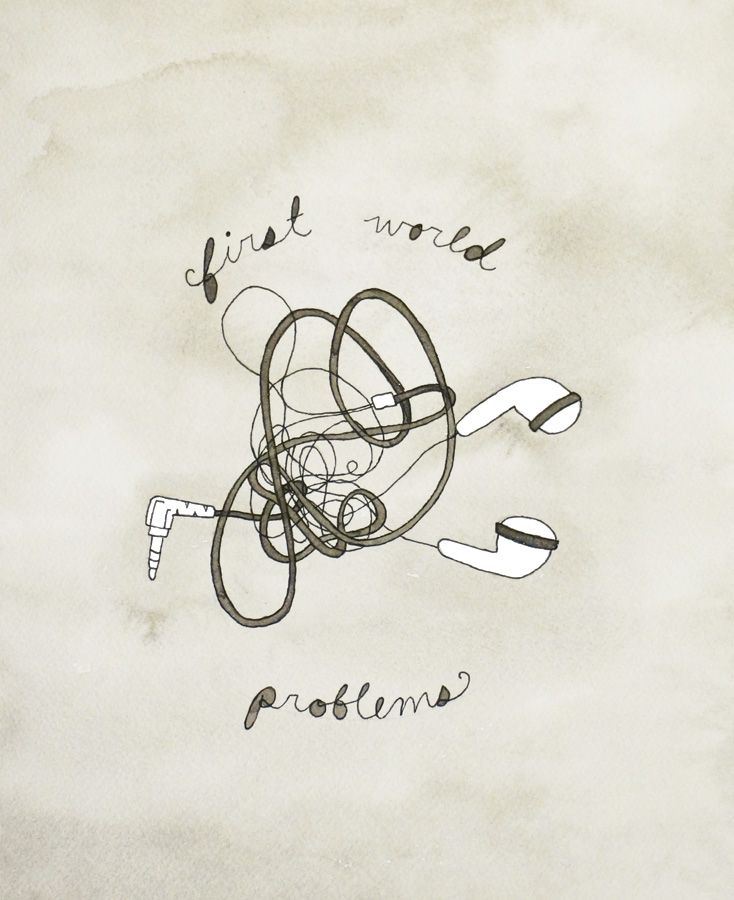 first world
problems